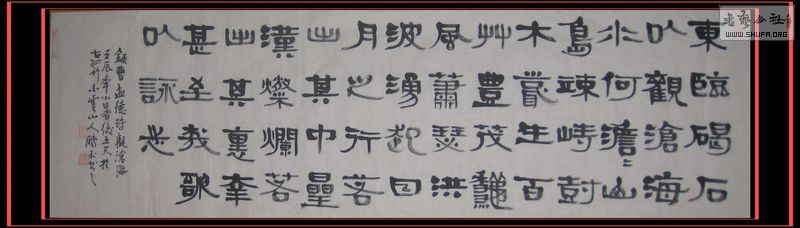 東臨碣石
㠯觀滄海
水何澹〻山
島竦峙尌
木叢生百
艸豐茂龝
風蕭瑟洪
波湧起日
月之行若
出其中曐
漢燦爛若
出其裏幸
甚至哉歌
㠯詠志
錄曹孟德詩觀滄海
壬辰年小暑後五天於
雲山人
書藝公社
WWW.SHUFA.ORG